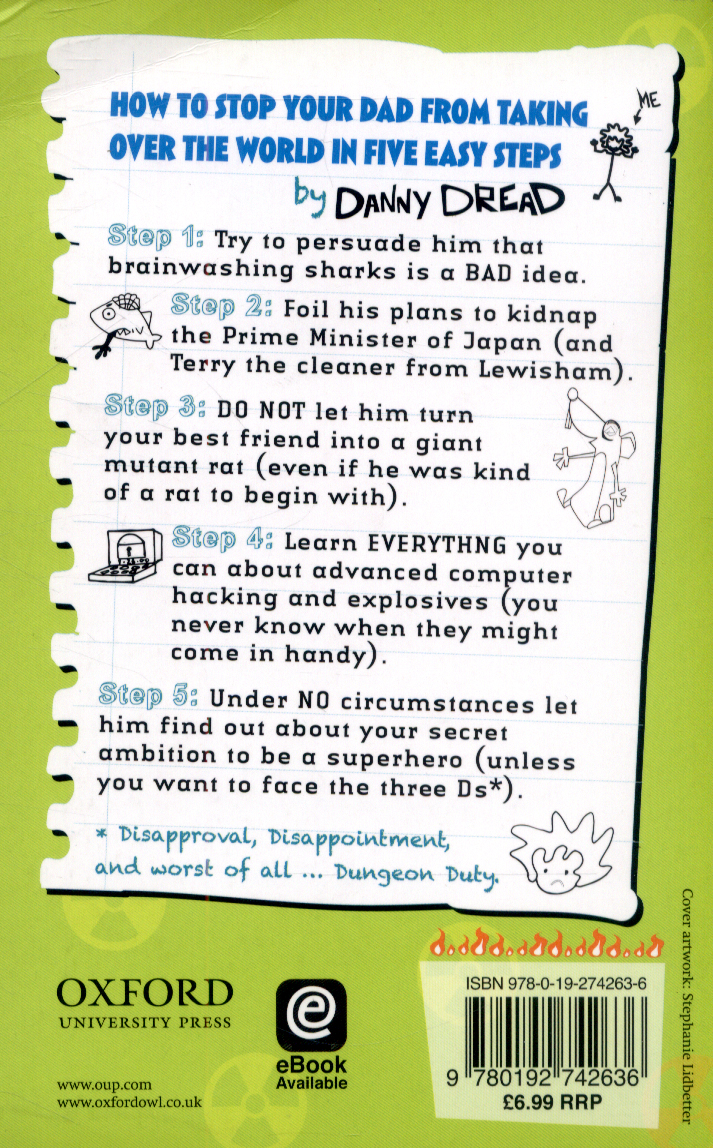 HOW TO STOP YOUR DAD FROM TAKING
OVER THE WORLD IN FIVE EASY STEPS
ME
by DANNY DREAD
Step 1: Try to persuade him that
brainwashing sharks is a BAD idea.
Step 2: Foil his plans to kidnap
the Prime Minister of Japan (and
Terry the cleaner from Lewisham).
Step 3: DO NOT let him turn
your best friend into a giant
mutant rat (even if he was kind
of a rat to begin with).
Step 4: Learn EVERYTHNG you
can about advanced computer
hacking and explosives (you
never know when they might
come in handy).
Step 5: Under NO circumstances let
him find out about your secret
ambition to be a superhero (unless
you want to face the three Ds*).
* Disapproval, Disappointment,
and worst of all ... Dungeon Duty.
Cover artwork: Stephanie Lidbetter
OXFORD
UNIVERSITY PRESS
www.oup.com
www.oxfordowl.co.uk
e
eBook
Available
ISBN 978-0-19-274263-6
9 780192 742636
£6.99 RRP